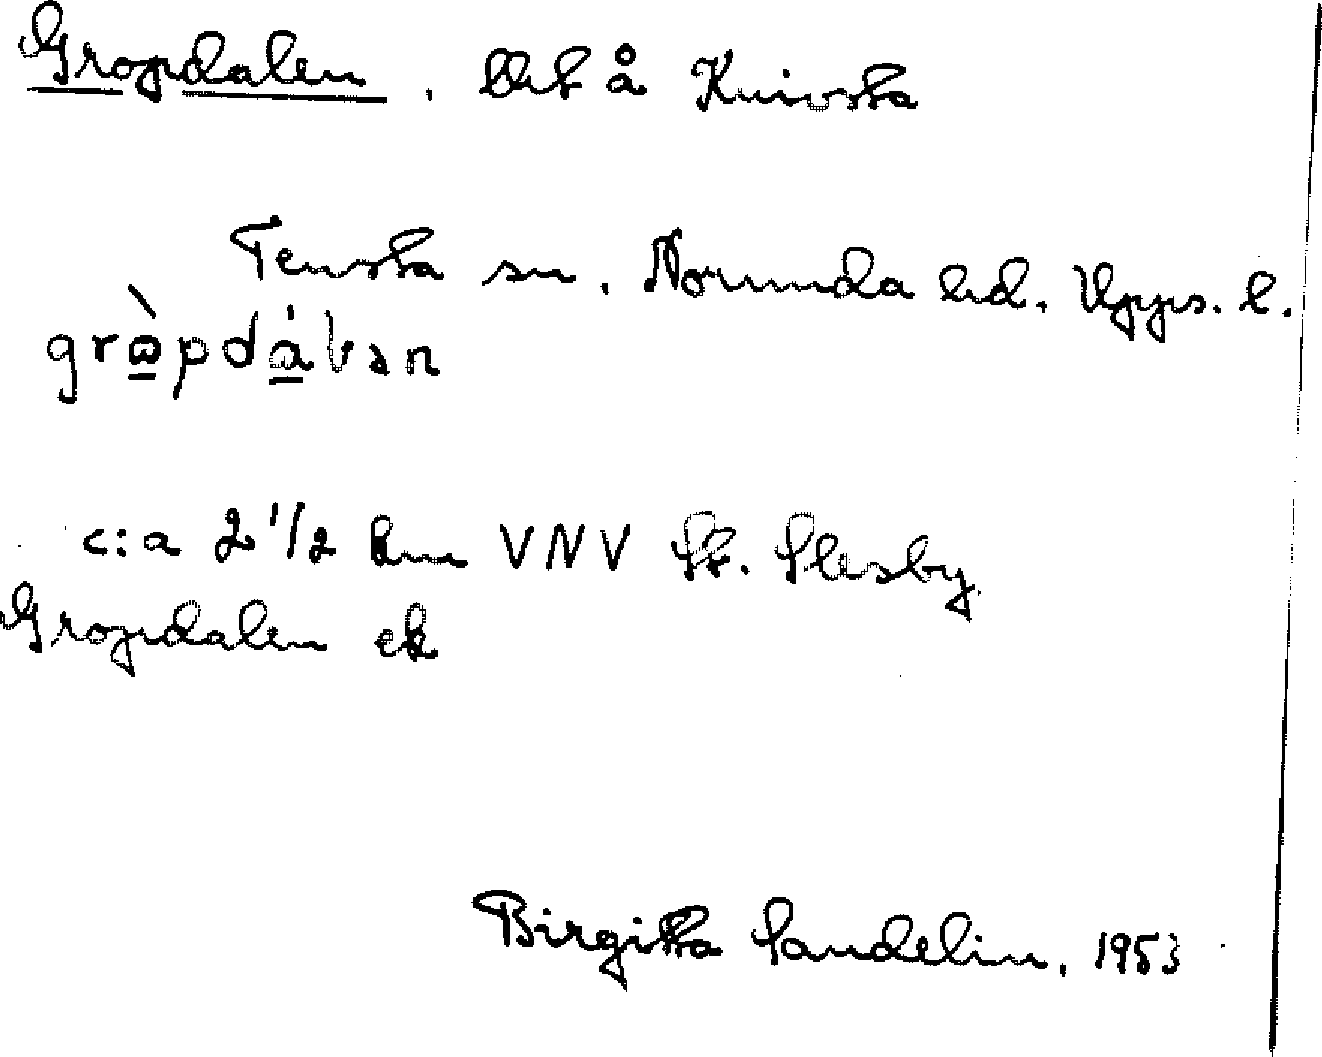 Gropdalen, Utj å Knivsta
Tensta sn. Norunda hd. Upps. l.
gròpdálən
c:a 2 1/2 km VNV St. Åsby
Gropdalen ek
Birgitta Sandelin, 1953